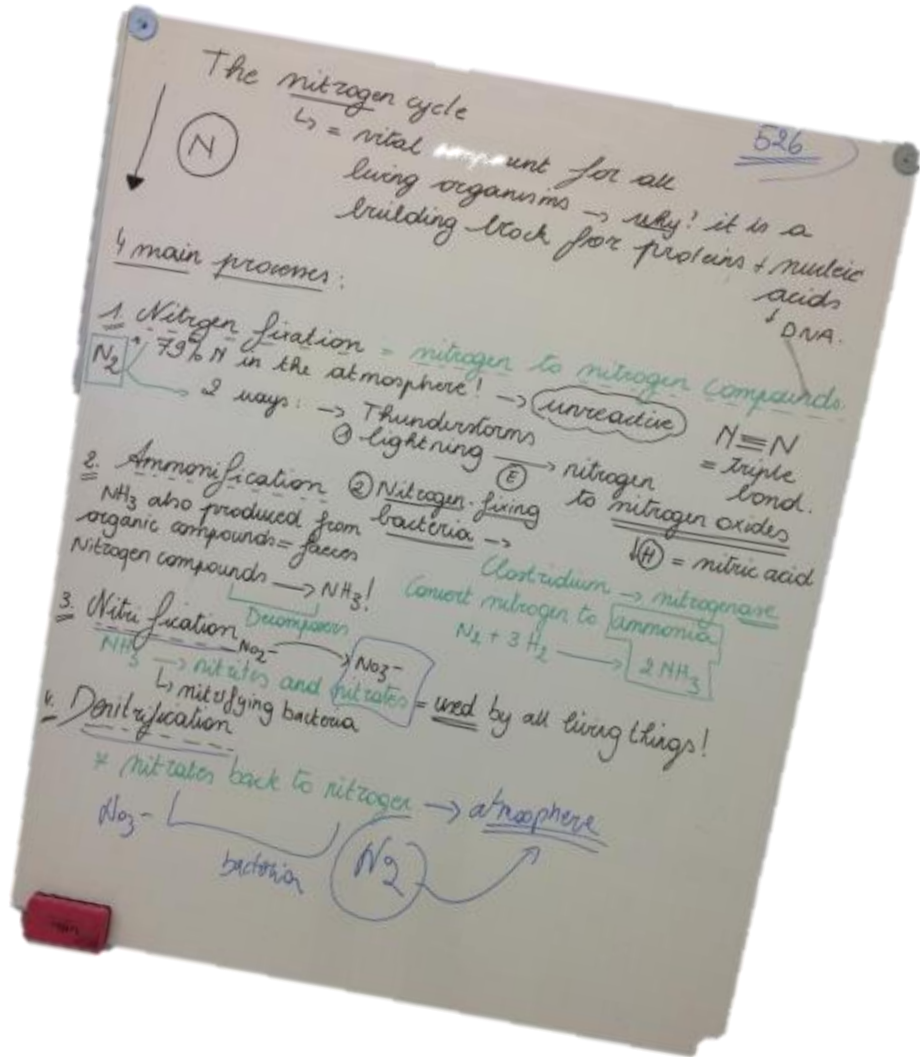 The nitrogen cycle
526
N
↳ = vital unt for all
living organisms → why? it is a
building block for proteins + nucleic
acids
↓ DNA.
4 main processes:
1. Nitrgen fixation = nitrogen to nitrogen compounds.
N2
* 79% N in the atmosphere! → unreactive
N≡N
= triple
bond.
2 ways: → Thunderstorms
① lightning → nitrogen
Ⓔ
to nitrogen oxides
↓Ⓗ = nitric acid
② Nitrogen-fixing
bacteria →
Clostridium → nitrogenase
Convert nitrogen to ammonia
N2 + 3H2 → 2NH3
2. Ammonification
NH3 also produced from
organic compounds = faeces
Nitrogen compounds → NH3!
Decomposers
3. Nitrification
No2- → No3-
NH3 → nitrites and nitrates = used by all living things!
↳ nitrifying bacteria
4. Denitrification
* nitrates back to nitrogen → atmosphere
No3-
bacteria
N2